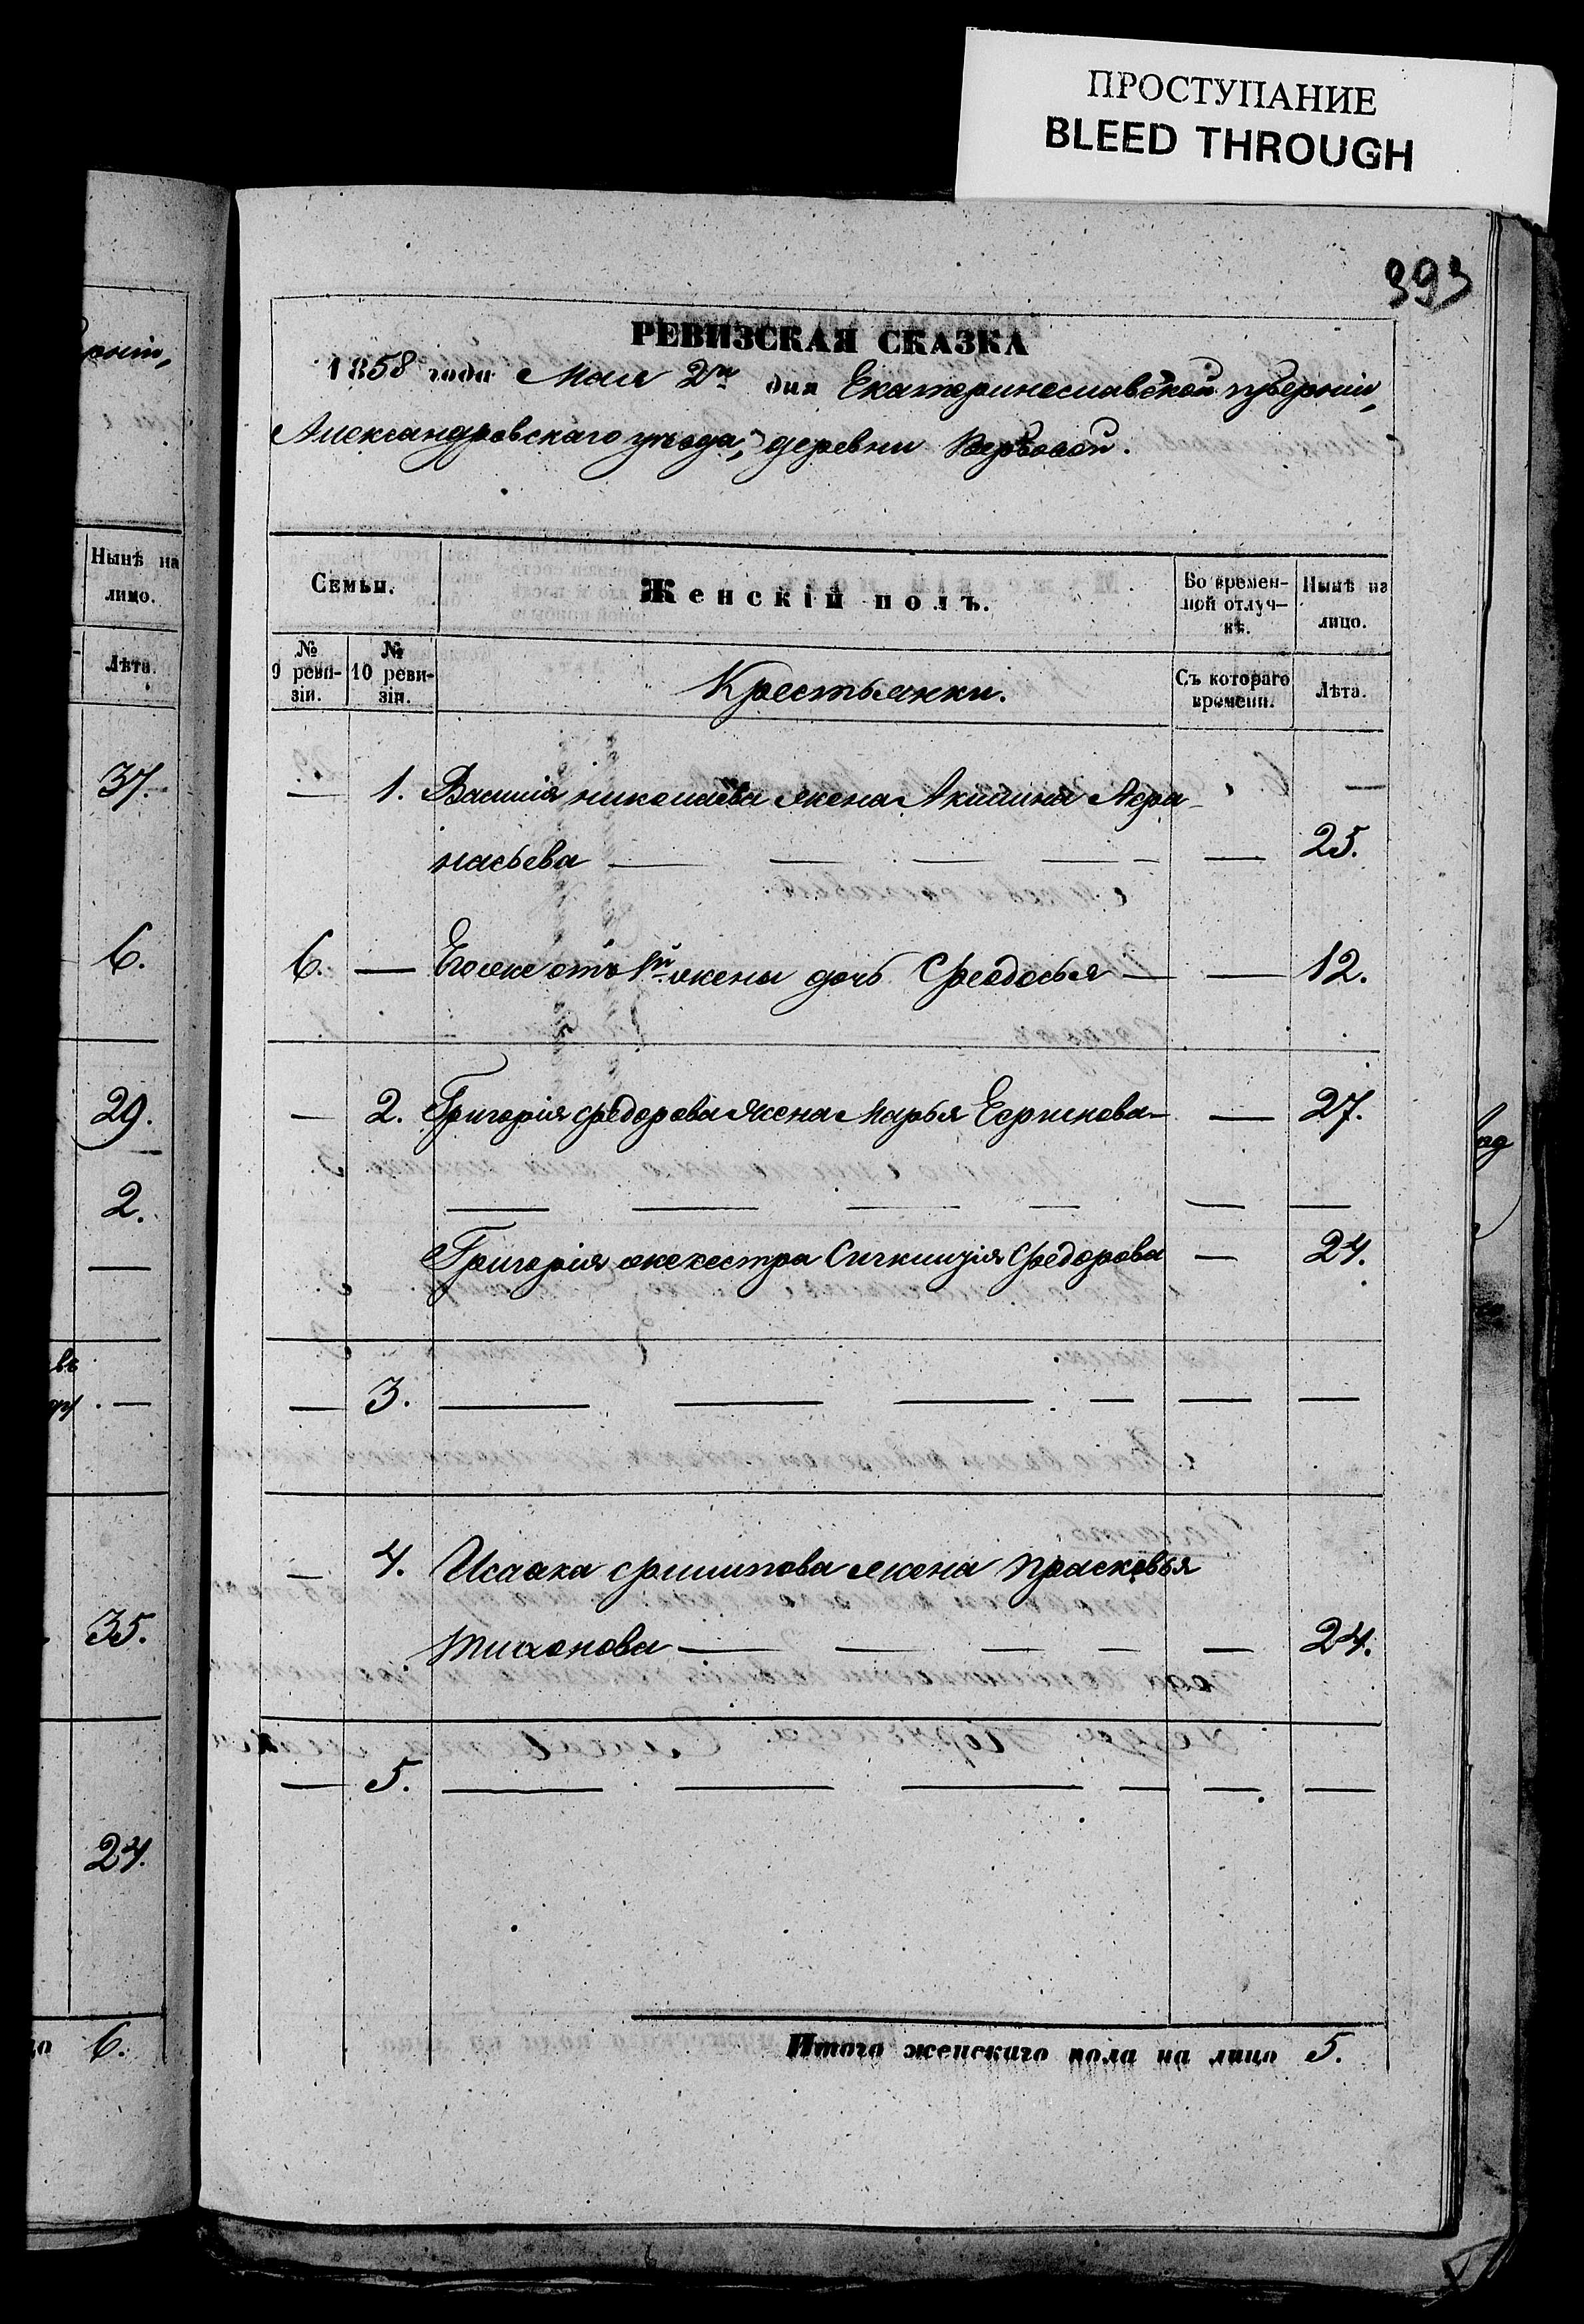 ПРОСТУПАНИЕ
BLEED THROUGH
393
РЕВИЗСКАЯ СКАЗКА
1858 года Мая 2го дня Екатеринославской губернии,
Александровскаго уѣзда, деревни Вербовой.
Нынѣ на
лицо.
Лѣта.
37.
6.
29.
2.
35.
24.
6.
Семьи. Женскій полъ. Во времен-
ной отлуч-
кѣ. Нынѣ на
лицо.
№
9 реви-
зіи. №
10 реви-
зіи. Крестьянки. Съ котораго
времени. Лѣта.
— 1. Василія Николаева жена Акилина Афа-
насьева — — — — — — 25.
6. — Егоже отъ 1й жены дочь Феодосья — — 12.
— 2. Григорія Федорова жена Марья — — 27.
Григорія же сестра Федорова — 24.
— 3. — — — — — —
— 4. Исаака Филипова жена Прасковья
Тихонова — — — — — 24.
— 5. — — — — — —
Итого женскаго пола на лицо 5.